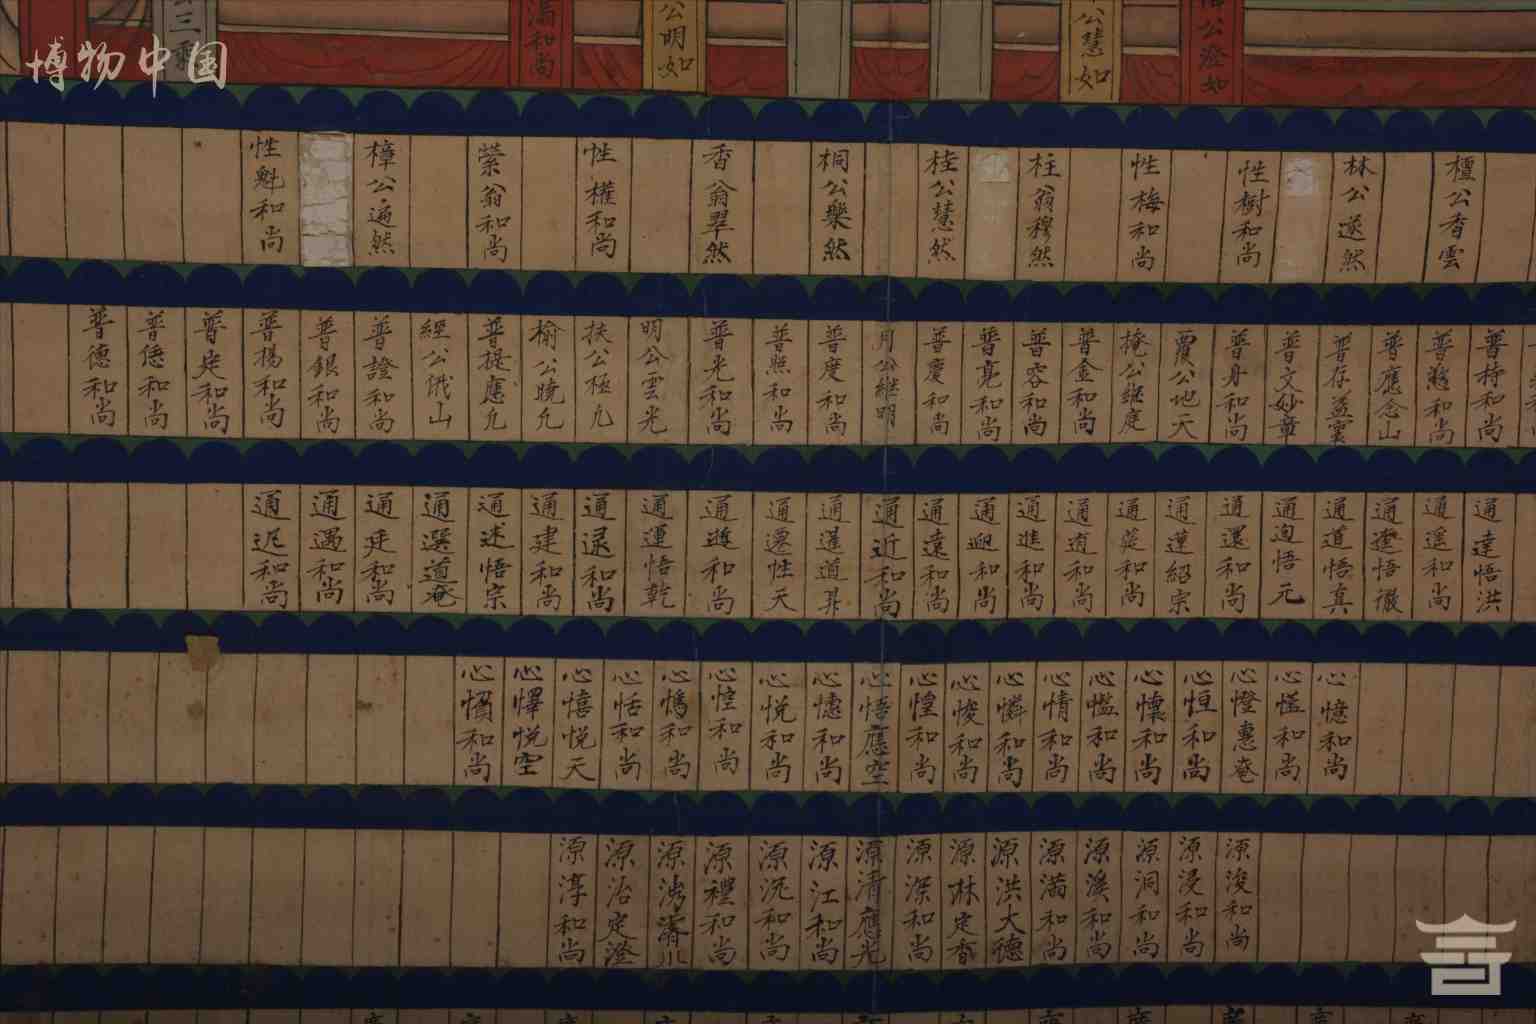 博物中国
漏和尚
公明如
公慧如
公澄如
檀公香雲
林公遂然
性樹和尚
性梅和尚
柱翁穆然
桂公慧然
桐公樂然
香翁翠然
性權和尚
縈翁和尚
樟公遍然
性魁和尚
普持和尚
普慈和尚
普應念山
普存益雲
普文妙章
普身和尚
覆公地天
掩公継庭
普金和尚
普容和尚
普亮和尚
普慶和尚
月公継明
普度和尚
普照和尚
普光和尚
明公雲光
扶公極九
榆公曉九
普提應九
經公俄山
普證和尚
普銀和尚
普揚和尚
普定和尚
普恁和尚
普德和尚
通達悟洪
通遥和尚
通澄悟徹
通道悟真
通迫悟元
通還和尚
通蓮紹宗
通莚和尚
通逍和尚
通進和尚
通迎和尚
通遠和尚
通近和尚
通暹道昇
通遷性天
通遊和尚
通運悟乾
通逯和尚
通建和尚
通述悟宗
通選道菴
通廷和尚
通遇和尚
通迟和尚
心憶和尚
心慥和尚
心憕惠菴
心恒和尚
心懷和尚
心懢和尚
心情和尚
心憐和尚
心悛和尚
心惶和尚
心悟應空
心憓和尚
心悦和尚
心悾和尚
心憍和尚
心恬和尚
心憘悦天
心懌悦空
心懫和尚
源浚和尚
源浸和尚
源洞和尚
源溪和尚
源満和尚
源洪大德
源淋定香
源深和尚
源清應光
源江和尚
源況和尚
源禮和尚
源治定澄
源淳和尚